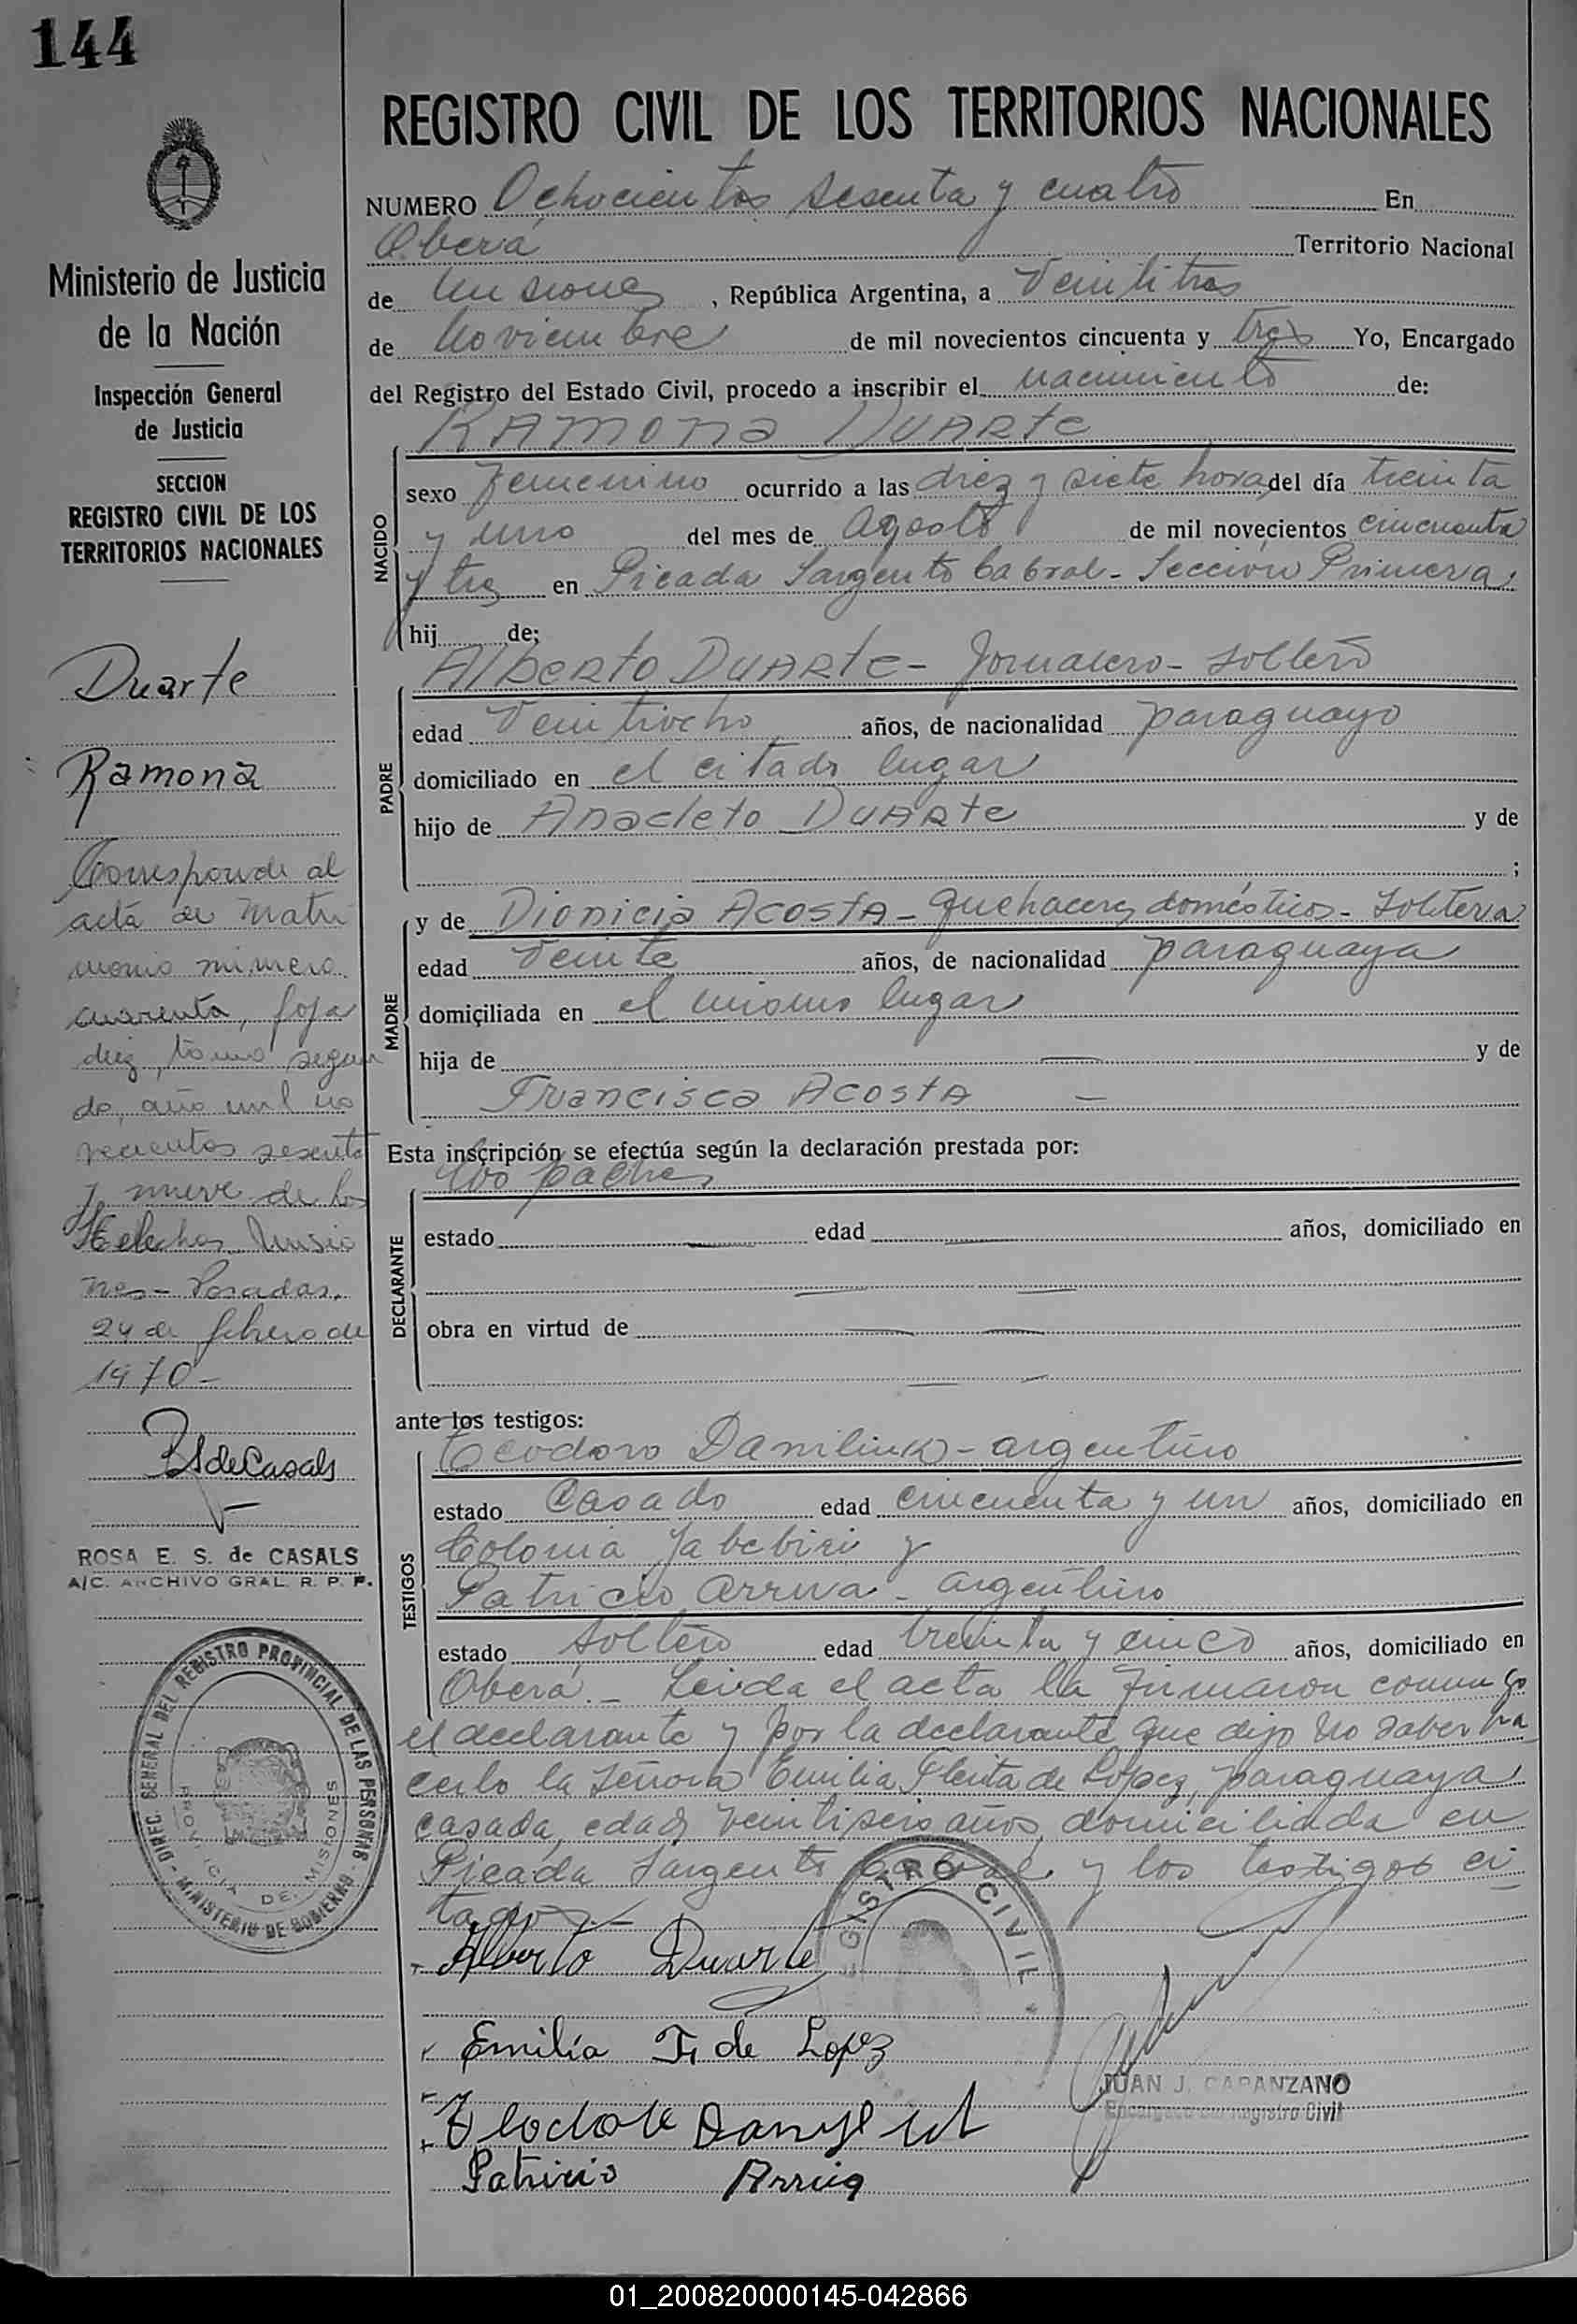 144
Ministerio de Justicia
de la Nación
Inspección General
de Justicia
SECCION
REGISTRO CIVIL DE LOS
TERRITORIOS NACIONALES
Duarte
Ramona
Corresponde al
acta de matri
monio número
cuarenta, foja
diez, tomo segun
do, año mil no
vecientos sesenta
y nueve de Los
Helechos Misio
nes - Posadas,
24 de febrero de
1970-
RSdeCasals
ROSA E. S. de CASALS
A/C. ARCHIVO GRAL. R. P. P.
DIREC. GENERAL DEL REGISTRO PROVINCIAL DE LAS PERSONAS - MINISTERIO DE GOBIERNO -
PROVINCIA DE MISIONES
REGISTRO CIVIL DE LOS TERRITORIOS NACIONALES
NUMERO Ochocientos sesenta y cuatro En
Oberá Territorio Nacional
de Misiones, República Argentina, a Veintitres
de Noviembre de mil novecientos cincuenta y tres Yo, Encargado
del Registro del Estado Civil, procedo a inscribir el nacimiento de:
RAMONA DUARTE
NACIDO
sexo femenino ocurrido a las diez y siete horas del día treinta
y uno del mes de Agosto de mil novecientos cincuenta
y tres en Picada Sargento Cabral - Sección Primera
hij de:
Alberto DUARTE - Jornalero - soltero
PADRE
edad Veintiocho años, de nacionalidad paraguayo
domiciliado en el citado lugar
hijo de Anacleto DUARTE y de
;
y de Dionicia ACOSTA - quehaceres domésticos - Soltera
MADRE
edad Veinte años, de nacionalidad paraguaya
domiciliada en el mismo lugar
hija de — y de
Francisca ACOSTA —
Esta inscripción se efectúa según la declaración prestada por:
los padres
DECLARANTE
estado — edad — años, domiciliado en
— —
obra en virtud de — —
— —
ante los testigos:
TESTIGOS
Teodoro Daniliuk - argentino
estado Casado edad cincuenta y un años, domiciliado en
Colonia Yabebiri y
Patricio Arrua - argentino
estado Soltero edad treinta y cinco años, domiciliado en
Oberá.- Leida el acta la firmaron conmigo
el declarante y por la declarante que dijo no saber ha
cerlo la señora Emilia de Lopez, paraguaya
casada, edad veintiseis años, domiciliada en
Picada Sargento Cabral y los testigos ci
tados.-
Alberto Duarte
REGISTRO CIVIL
Emilia F. de Lopez
JUAN J. CAPANZANO
Encargado del Registro Civil
Patricio Arrua
01_200820000145-042866